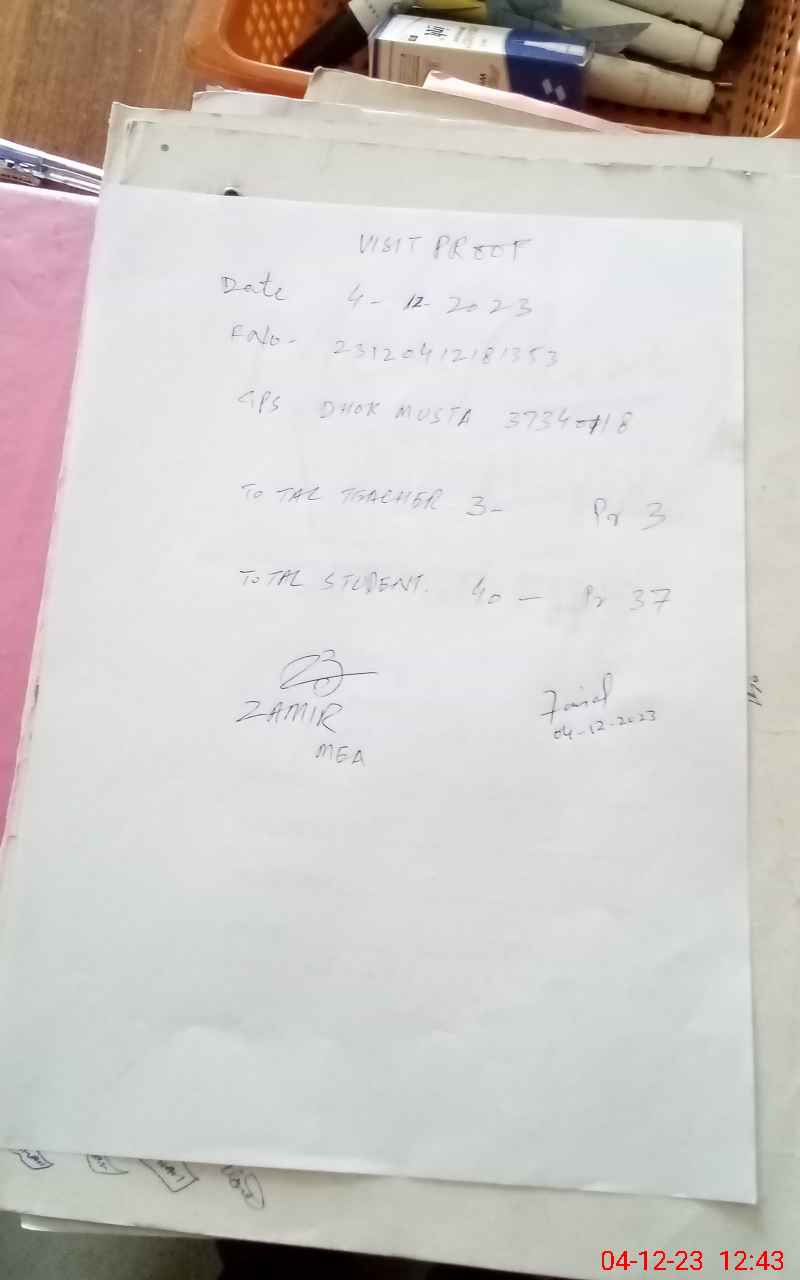 VISIT PROOF
Date 4-12-2023
F.No- 23120412181353
GPS DHOK MUSTA 37340118
TOTAL TEACHER 3- Pr 3
TOTAL STUDENT. 40 - Pr 37
ZAMIR
MEA
04-12-2023
04-12-23 12:43